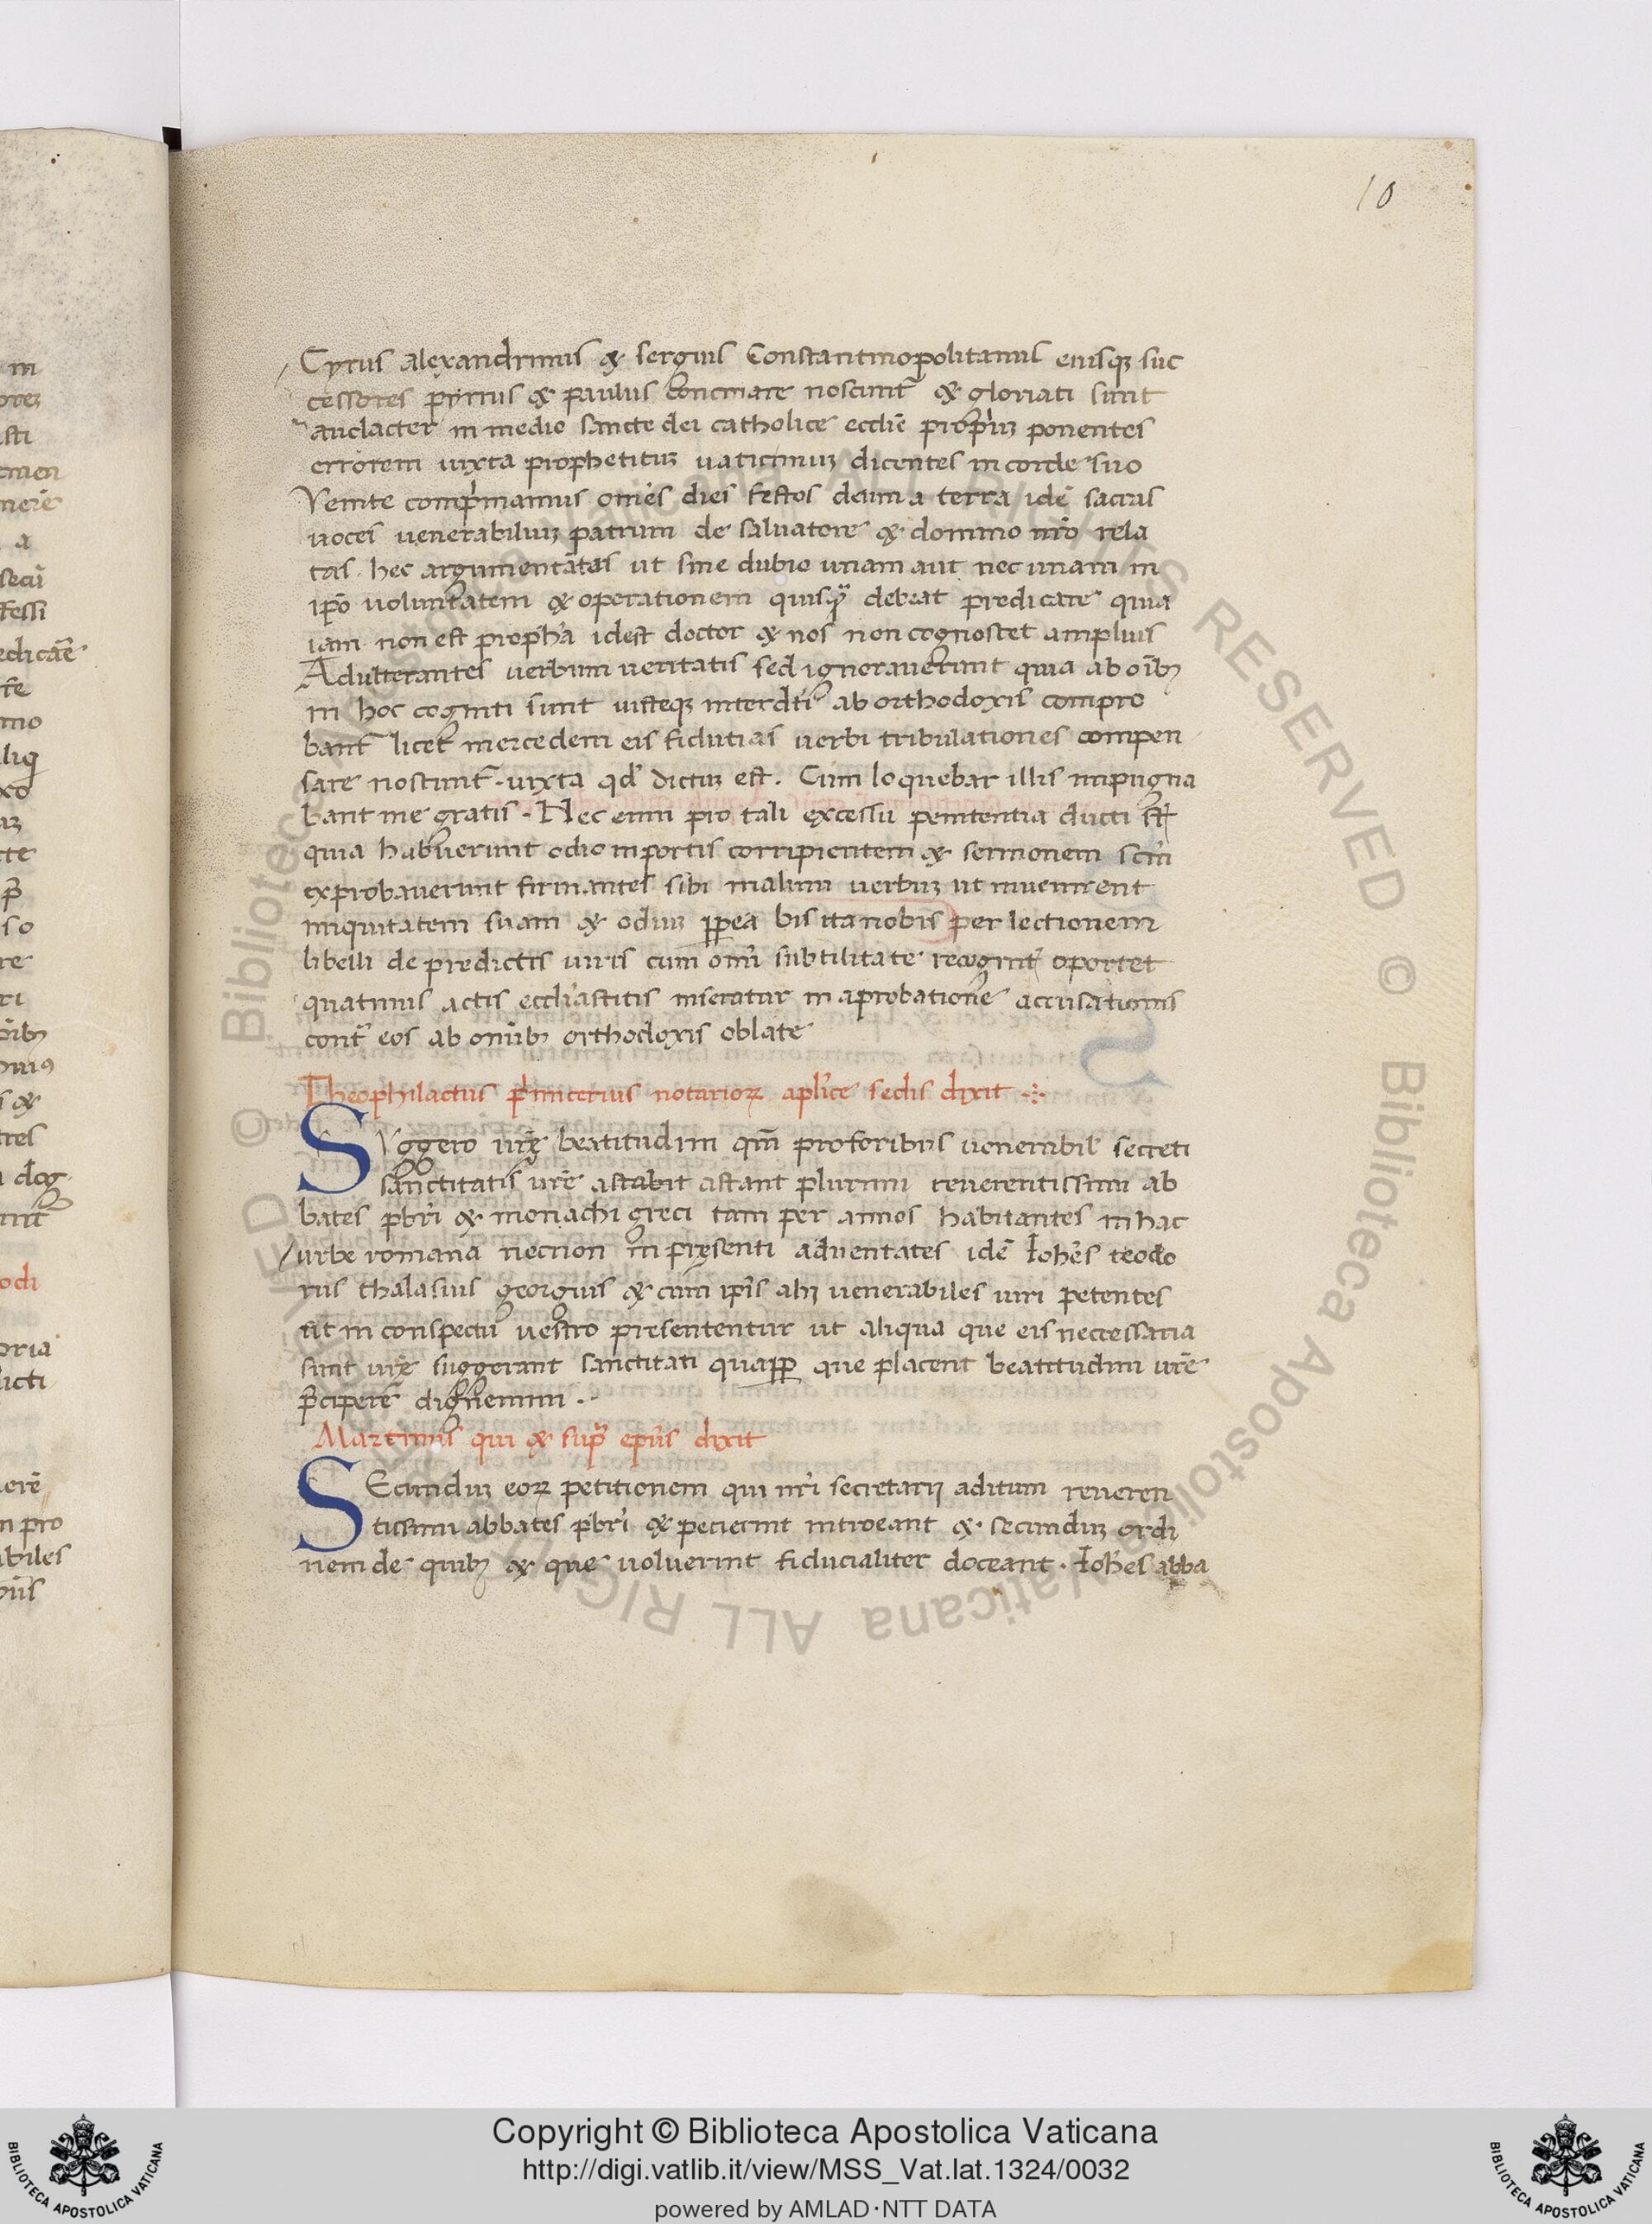 10
Cyrus alexandrinus & sergius Constantinopolitanus eiusq; suc
cessores pirrus & paulus concinare noscunt͂ & gloriati sunt
audacter in medio sancte dei catholice eccl̄ie prop̱riuʒ ponentes
errorem iuxta prophetituʒ uaticiniuʒ dicentes in corde suo
Venite comp̱rimamus om̄es dies festos dei in a terra idē sacras
uoces uenerabiliuʒ patrum de saluatore & domino nr̄o rela
tas. hec argumentātes ut sine dubio unam aut nec unam in
ip̄o uoluntatem & operationem quisq̃ debeat predicare quia
iam non est proph̄a idest doctor & nos non cognoscet amplius
Adulterantes uerbum ueritatis sed ignorauerunt quia ab oībꝫ
in hoc cogniti sunt iusteqʒ interdc̄i ab orthodoxis compro
bant͂ licet mercedem eis fidutias uerbi tribulationes compen
sare noscunt͂. iuxta qd̓ dictuʒ est. Cum loquebar illis inpugna
bant me gratis. Nec enim pro tali excessu penitentia ducti st̄
quia habuerunt odio in portis corripientem & sermonem scm̄
exprobauerunt firmantes sibi malum uerbuʒ ut inuenirent
iniquitatem suam & odiuʒ ꝓpea bis ita nobis per lectionem
libelli de predictis uiris cum om̄i subtilitate recognit̓ oportet
quatinus actis eccl̓iasticis inseratur in aprobatione accusationis
cont͂ eos ab omībꝫ orthodoxis oblate
Theophilactus p̓imicerius notarioꝝ apl̓ice sedis dixit
SVggero ur̄ę beatitudini qm̄ pro foribus uenerabil̓ secreti
sanctitatis ur̄e astabit astant plurimi reuerentissimi ab
bates p̄bri & monachi greci tam per annos habitantes in hac
urbe romana necnon in pręsenti aduentates idē Ioh̓es teodo
rus thalasius georgius & cum ip̄is alij uenerabiles uiri petentes
ut in conspectu uestro presententur ut aliqua que eis necessaria
sunt ur̄ę suggerant sanctitati quaꝓꝑ que placent beatitudini ur̄e
p̄cipere dignemini.
Martinus qui & sup̃ ep̄us dixit
SEcunduʒ eoꝝ petitionem qui nr̄i secretarij aditum reueren
tissimi abbates p̄bri & pecierint introeant & secunduʒ ordi
nem de quibꝫ & que uoluerint fiducialiter doceant. Ioh̓es abba
Copyright © Biblioteca Apostolica Vaticana
http://digi.vatlib.it/view/MSS_Vat.lat.1324/0032
powered by AMLAD·NTT DATA